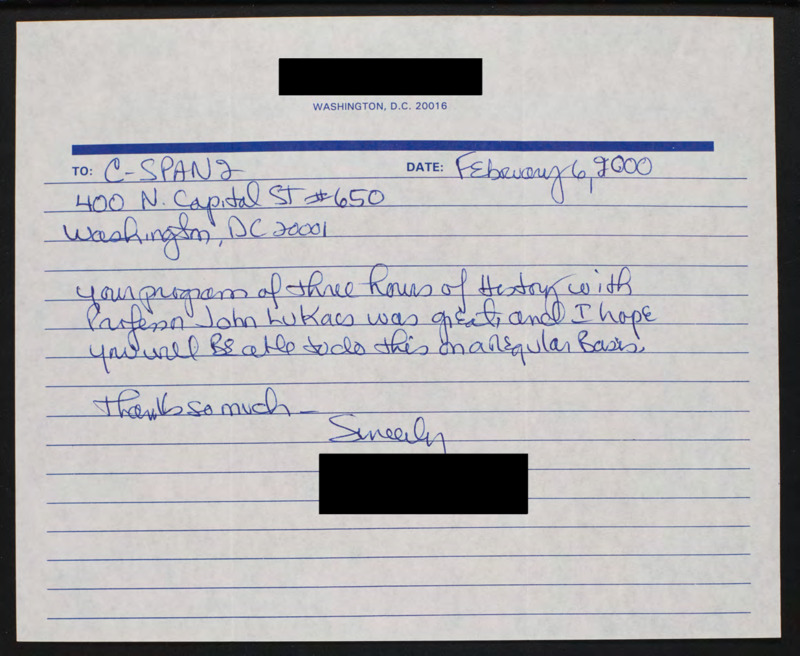 WASHINGTON, D.C. 20016
TO: C-SPAN 2 DATE: February 6, 2000
400 N. Capital ST #650
Washington, DC 20001
your program of three hours of History with
Professor John Lukacs was great, and I hope
you will BE able to do this on a regular Basis.
Thanks so much —
Sincerely